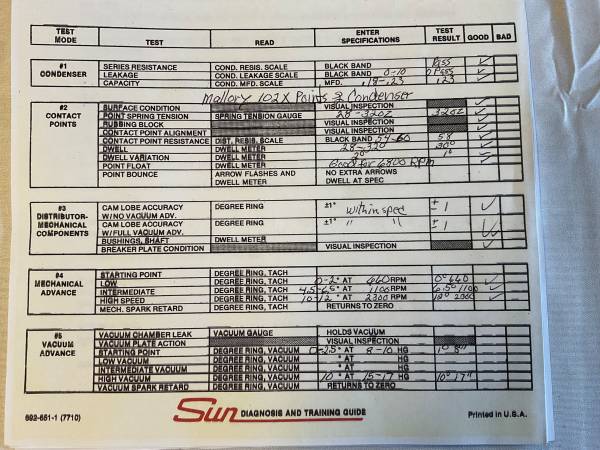 TEST MODE TEST READ ENTER SPECIFICATIONS TEST RESULT GOOD BAD
#1 CONDENSER
SERIES RESISTANCE COND. RESIS. SCALE BLACK BAND Pass ✓
LEAKAGE COND. LEAKAGE SCALE BLACK BAND 0-10 0 Pass ✓
CAPACITY COND. MFD. SCALE MFD. .18-.23 .23 ✓
Mallory 102X Points & Condenser
#2 CONTACT POINTS
SURFACE CONDITION VISUAL INSPECTION ✓
POINT SPRING TENSION SPRING TENSION GAUGE 28-32oz 32oz ✓
RUBBING BLOCK VISUAL INSPECTION ✓
CONTACT POINT ALIGNMENT VISUAL INSPECTION ✓
CONTACT POINT RESISTANCE DIST. RESIS. SCALE BLACK BAND 54-60 58 ✓
DWELL DWELL METER 28-32° 30° ✓
DWELL VARIATION DWELL METER 2° 1° ✓
POINT FLOAT DWELL METER Good for 6800 RPM
POINT BOUNCE ARROW FLASHES AND DWELL METER NO EXTRA ARROWS DWELL AT SPEC
#3 DISTRIBUTOR-MECHANICAL COMPONENTS
CAM LOBE ACCURACY W/NO VACUUM ADV. DEGREE RING ±1° within spec ± 1 ✓
CAM LOBE ACCURACY W/FULL VACUUM ADV. DEGREE RING ±1° " " ± 1 ✓
BUSHINGS, SHAFT DWELL METER ✓
BREAKER PLATE CONDITION VISUAL INSPECTION ✓
#4 MECHANICAL ADVANCE
STARTING POINT DEGREE RING, TACH
LOW DEGREE RING, TACH 0-2° AT 660 RPM 0° 660 ✓
INTERMEDIATE DEGREE RING, TACH 4.5-6.5° AT 1100 RPM 6.5° 1100 ✓
HIGH SPEED DEGREE RING, TACH 10-12° AT 2300 RPM
MECH. SPARK RETARD DEGREE RING, TACH RETURNS TO ZERO
#5 VACUUM ADVANCE
VACUUM CHAMBER LEAK VACUUM GAUGE HOLDS VACUUM
VACUUM PLATE ACTION VISUAL INSPECTION
STARTING POINT DEGREE RING, VACUUM 0-2.5° AT 8-10 HG 1° 8"
LOW VACUUM DEGREE RING, VACUUM ° AT HG
INTERMEDIATE VACUUM DEGREE RING, VACUUM ° AT HG
HIGH VACUUM DEGREE RING, VACUUM 10 ° AT 15-17 HG 10° 17"
VACUUM SPARK RETARD DEGREE RING, VACUUM RETURNS TO ZERO
692-651-1 (7710) Sun DIAGNOSIS AND TRAINING GUIDE Printed in U.S.A.